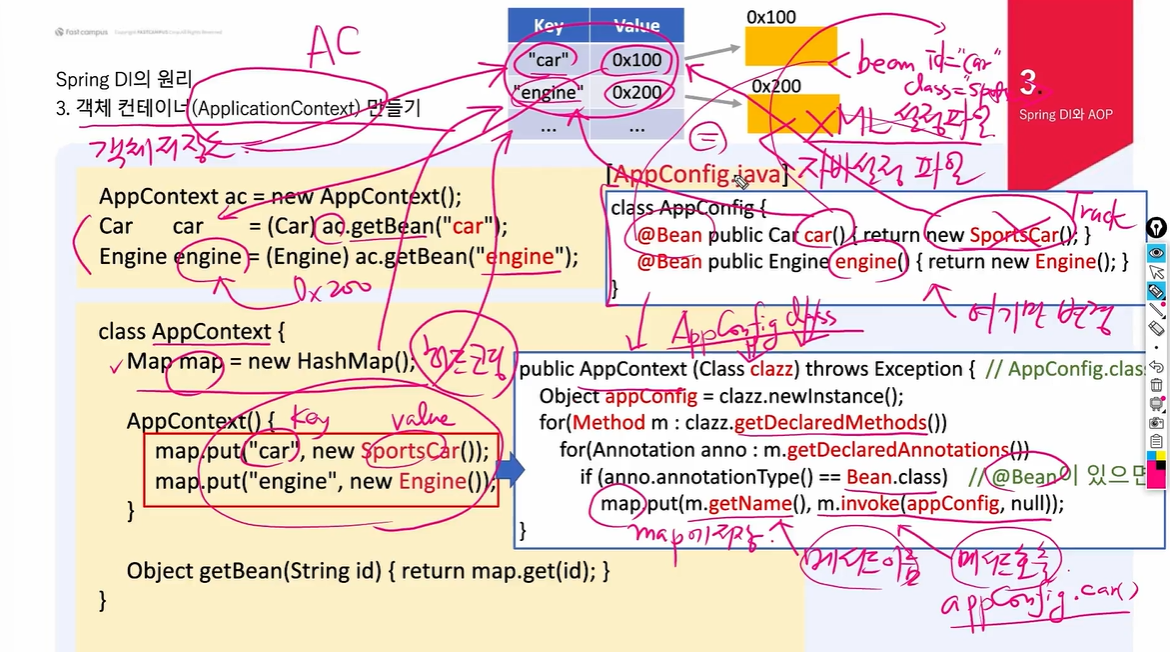 fastcampus Copyright FASTCAMPUS Corp. All Rights Reserved
AC
Spring DI의 원리
3. 객체 컨테이너(ApplicationContext) 만들기
객체저장소
Key Value
"car" 0x100
"engine" 0x200
... ...
0x100
0x200
bean id="car"
class="Sport
XML 설정파일
(=)
자바설정 파일
3.
Spring DI와 AOP
AppContext ac = new AppContext();
Car car = (Car) ac.getBean("car");
Engine engine = (Engine) ac.getBean("engine");
0x200
[AppConfig.java]
class AppConfig {
@Bean public Car car() { return new SportsCar(); }
Track
@Bean public Engine engine() { return new Engine(); }
}
여기만 변경
AppConfig.class
class AppContext {
Map map = new HashMap();
하드코딩
AppContext() {
key value
map.put("car", new SportsCar());
map.put("engine", new Engine());
}
Object getBean(String id) { return map.get(id); }
}
public AppContext (Class clazz) throws Exception { // AppConfig.clas
Object appConfig = clazz.newInstance();
for(Method m : clazz.getDeclaredMethods())
for(Annotation anno : m.getDeclaredAnnotations())
if (anno.annotationType() == Bean.class) // @Bean이 있으면
map.put(m.getName(), m.invoke(appConfig, null));
}
map에저장.
메서드이름
메서드호출.
appConfig.car()